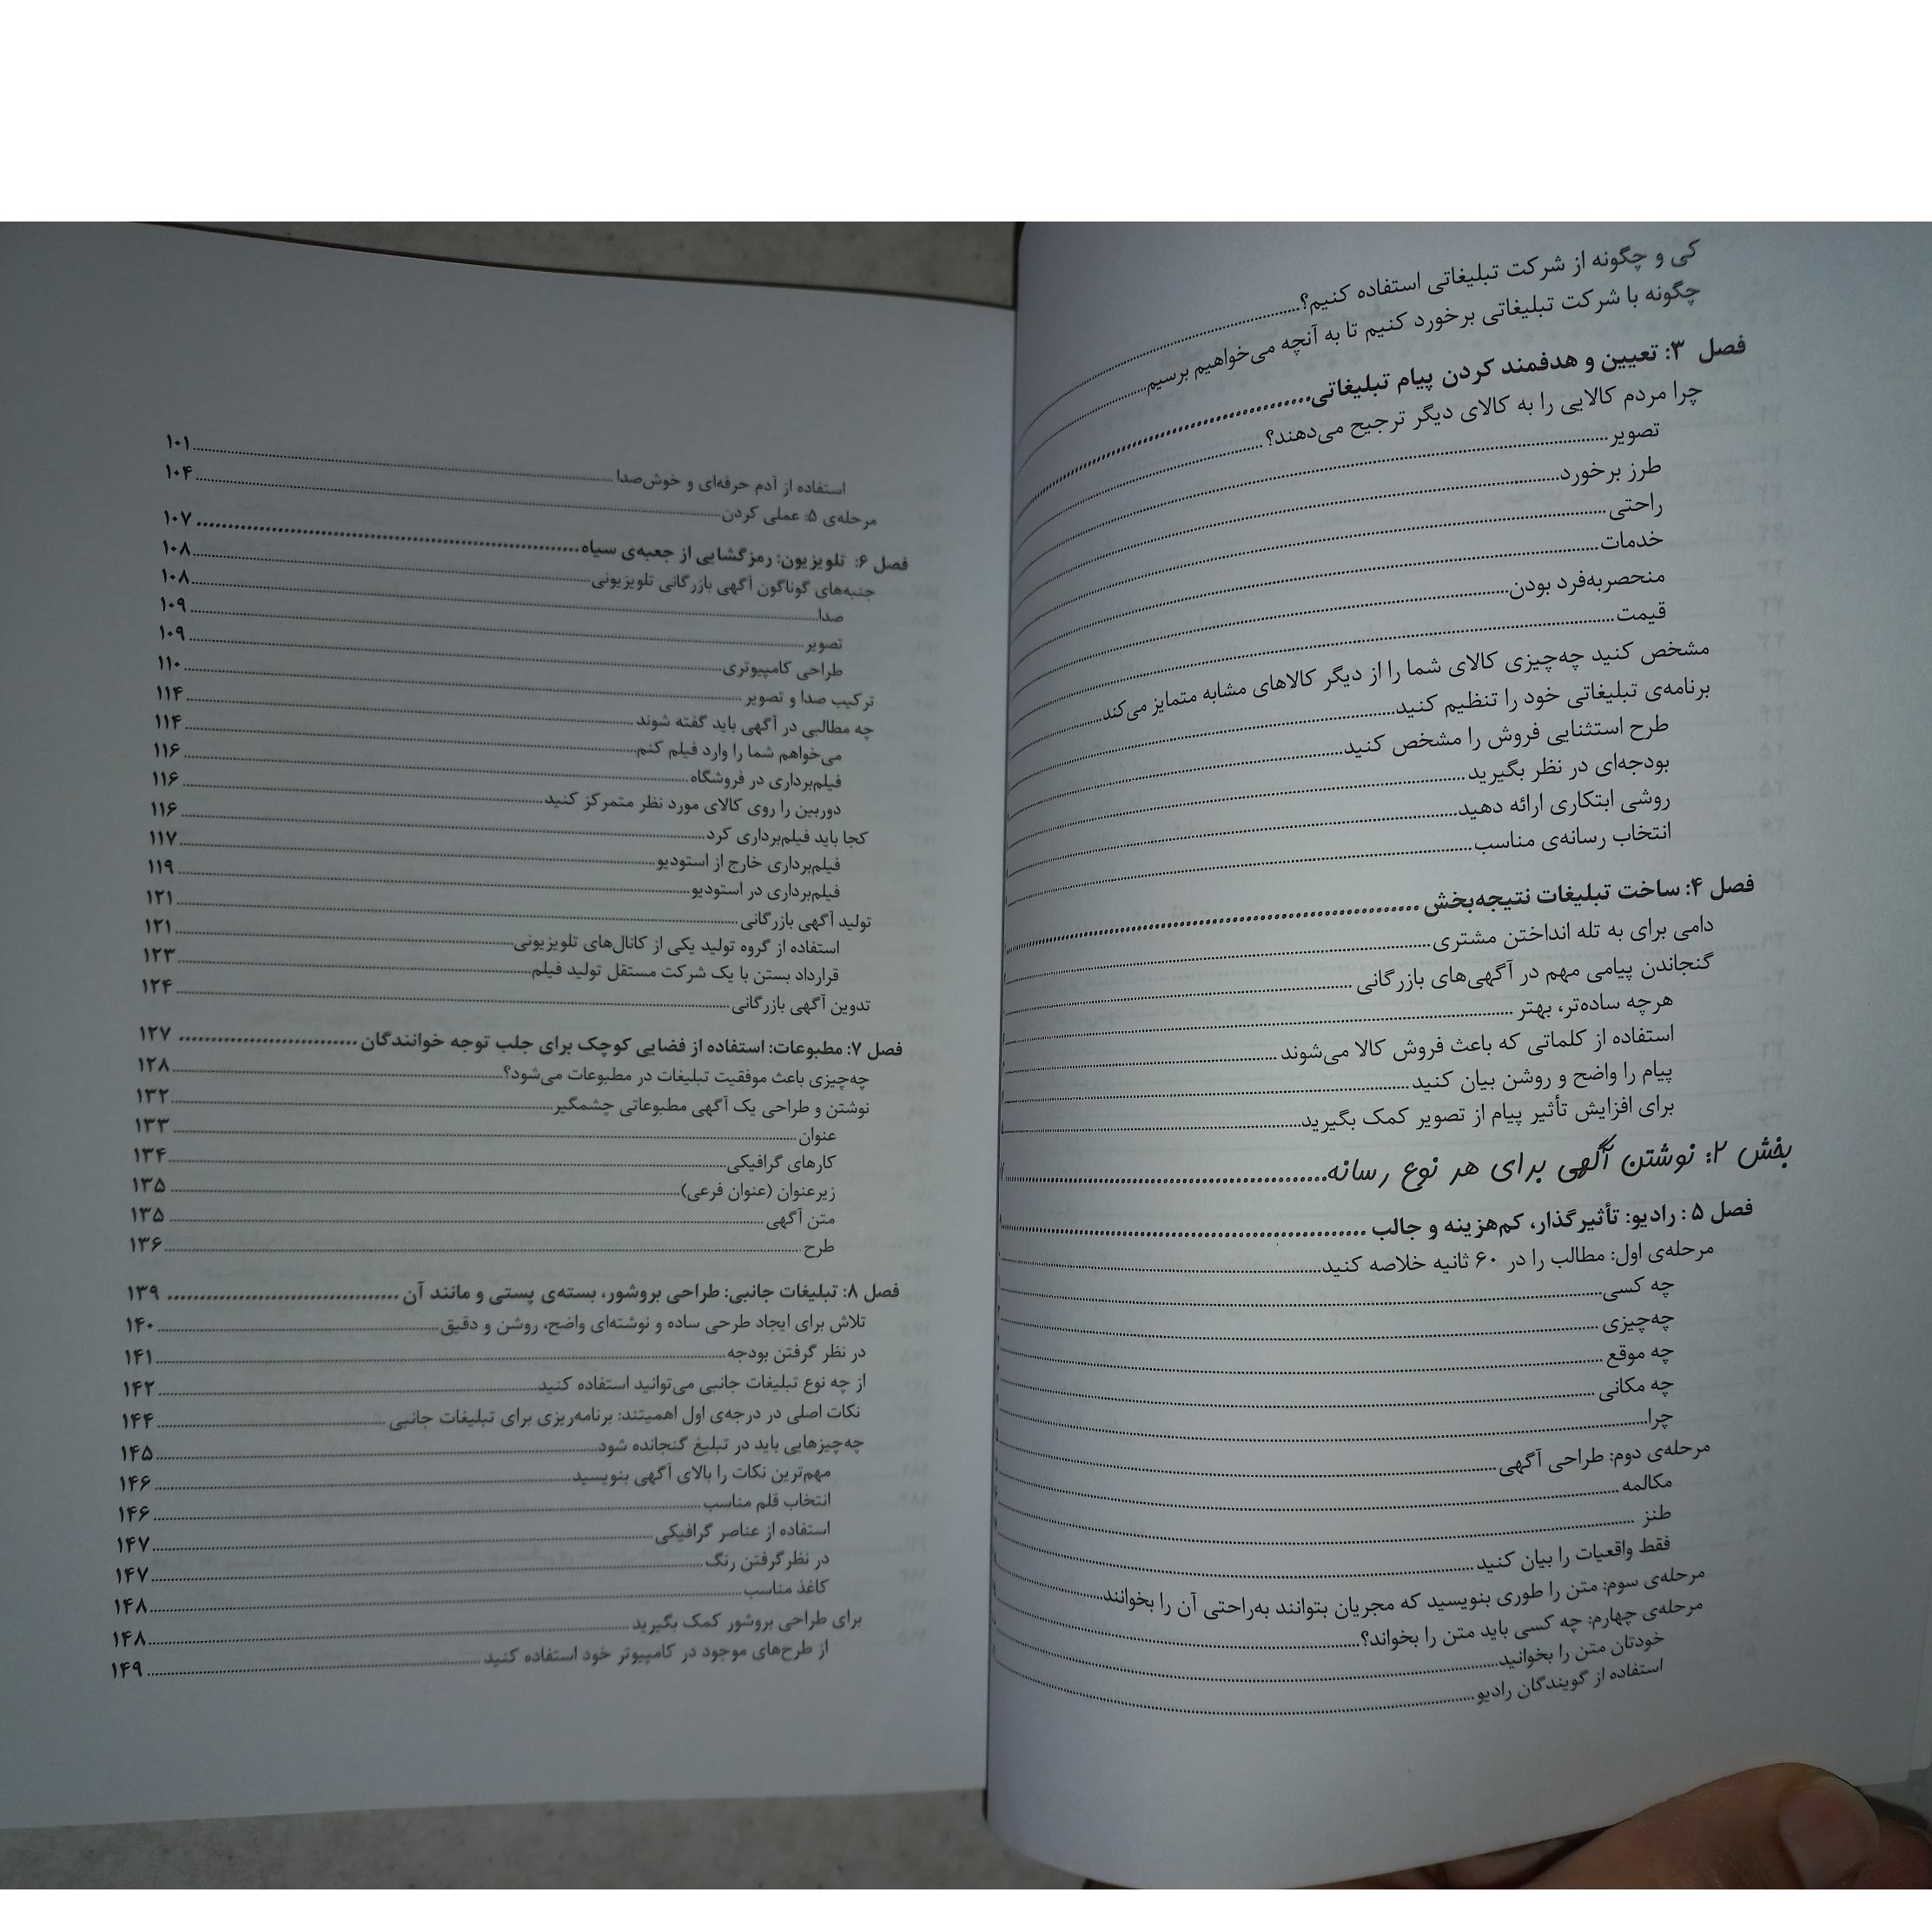 کی و چگونه از شرکت تبلیغاتی استفاده کنیم؟
چگونه با شرکت تبلیغاتی برخورد کنیم تا به آنچه می‌خواهیم برسیم
فصل ۳: تعیین و هدفمند کردن پیام تبلیغاتی
چرا مردم کالایی را به کالای دیگر ترجیح می‌دهند؟
تصویر
طرز برخورد
راحتی
خدمات
منحصربه‌فرد بودن
قیمت
مشخص کنید چه‌چیزی کالای شما را از دیگر کالاهای مشابه متمایز می‌کند
برنامه‌ی تبلیغاتی خود را تنظیم کنید
طرح استثنایی فروش را مشخص کنید
بودجه‌ای در نظر بگیرید
روشی ابتکاری ارائه دهید
انتخاب رسانه‌ی مناسب
فصل ۴: ساخت تبلیغات نتیجه‌بخش
دامی برای به تله انداختن مشتری
گنجاندن پیامی مهم در آگهی‌های بازرگانی
هرچه ساده‌تر، بهتر
استفاده از کلماتی که باعث فروش کالا می‌شوند
پیام را واضح و روشن بیان کنید
برای افزایش تأثیر پیام از تصویر کمک بگیرید
بخش ۲: نوشتن آگهی برای هر نوع رسانه
فصل ۵: رادیو: تأثیرگذار، کم‌هزینه و جالب
مرحله‌ی اول: مطالب را در ۶۰ ثانیه خلاصه کنید
چه کسی
چه‌چیزی
چه موقع
چه مکانی
چرا
مرحله‌ی دوم: طراحی آگهی
مکالمه
طنز
فقط واقعیات را بیان کنید
مرحله‌ی سوم: متن را طوری بنویسید که مجریان بتوانند به‌راحتی آن را بخوانند
مرحله‌ی چهارم: چه کسی باید متن را بخواند؟
خودتان متن را بخوانید
استفاده از گویندگان رادیو
استفاده از آدم حرفه‌ای و خوش‌صدا ۱۰۱
مرحله‌ی ۵: عملی کردن ۱۰۴
فصل ۶: تلویزیون: رمزگشایی از جعبه‌ی سیاه ۱۰۷
جنبه‌های گوناگون آگهی بازرگانی تلویزیونی ۱۰۸
صدا ۱۰۸
تصویر ۱۰۹
طراحی کامپیوتری ۱۰۹
ترکیب صدا و تصویر ۱۱۰
چه مطالبی در آگهی باید گفته شوند ۱۱۴
می‌خواهم شما را وارد فیلم کنم ۱۱۴
فیلم‌برداری در فروشگاه ۱۱۶
دوربین را روی کالای مورد نظر متمرکز کنید ۱۱۶
کجا باید فیلم‌برداری کرد ۱۱۶
فیلم‌برداری خارج از استودیو ۱۱۷
فیلم‌برداری در استودیو ۱۱۹
تولید آگهی بازرگانی ۱۲۱
استفاده از گروه تولید یکی از کانال‌های تلویزیونی ۱۲۱
قرارداد بستن با یک شرکت مستقل تولید فیلم ۱۲۳
تدوین آگهی بازرگانی ۱۲۴
فصل ۷: مطبوعات: استفاده از فضایی کوچک برای جلب توجه خوانندگان ۱۲۷
چه‌چیزی باعث موفقیت تبلیغات در مطبوعات می‌شود؟ ۱۲۸
نوشتن و طراحی یک آگهی مطبوعاتی چشمگیر ۱۳۲
عنوان ۱۳۳
کارهای گرافیکی ۱۳۴
زیرعنوان (عنوان فرعی) ۱۳۵
متن آگهی ۱۳۵
طرح ۱۳۶
فصل ۸: تبلیغات جانبی: طراحی بروشور، بسته‌ی پستی و مانند آن ۱۳۹
تلاش برای ایجاد طرحی ساده و نوشته‌ای واضح، روشن و دقیق ۱۴۰
در نظر گرفتن بودجه ۱۴۱
از چه نوع تبلیغات جانبی می‌توانید استفاده کنید ۱۴۲
نکات اصلی در درجه‌ی اول اهمیتند: برنامه‌ریزی برای تبلیغات جانبی ۱۴۴
چه‌چیزهایی باید در تبلیغ گنجانده شود ۱۴۵
مهم‌ترین نکات را بالای آگهی بنویسید ۱۴۶
انتخاب قلم مناسب ۱۴۶
استفاده از عناصر گرافیکی ۱۴۷
در نظرگرفتن رنگ ۱۴۷
کاغذ مناسب ۱۴۸
برای طراحی بروشور کمک بگیرید ۱۴۸
از طرح‌های موجود در کامپیوتر خود استفاده کنید ۱۴۹